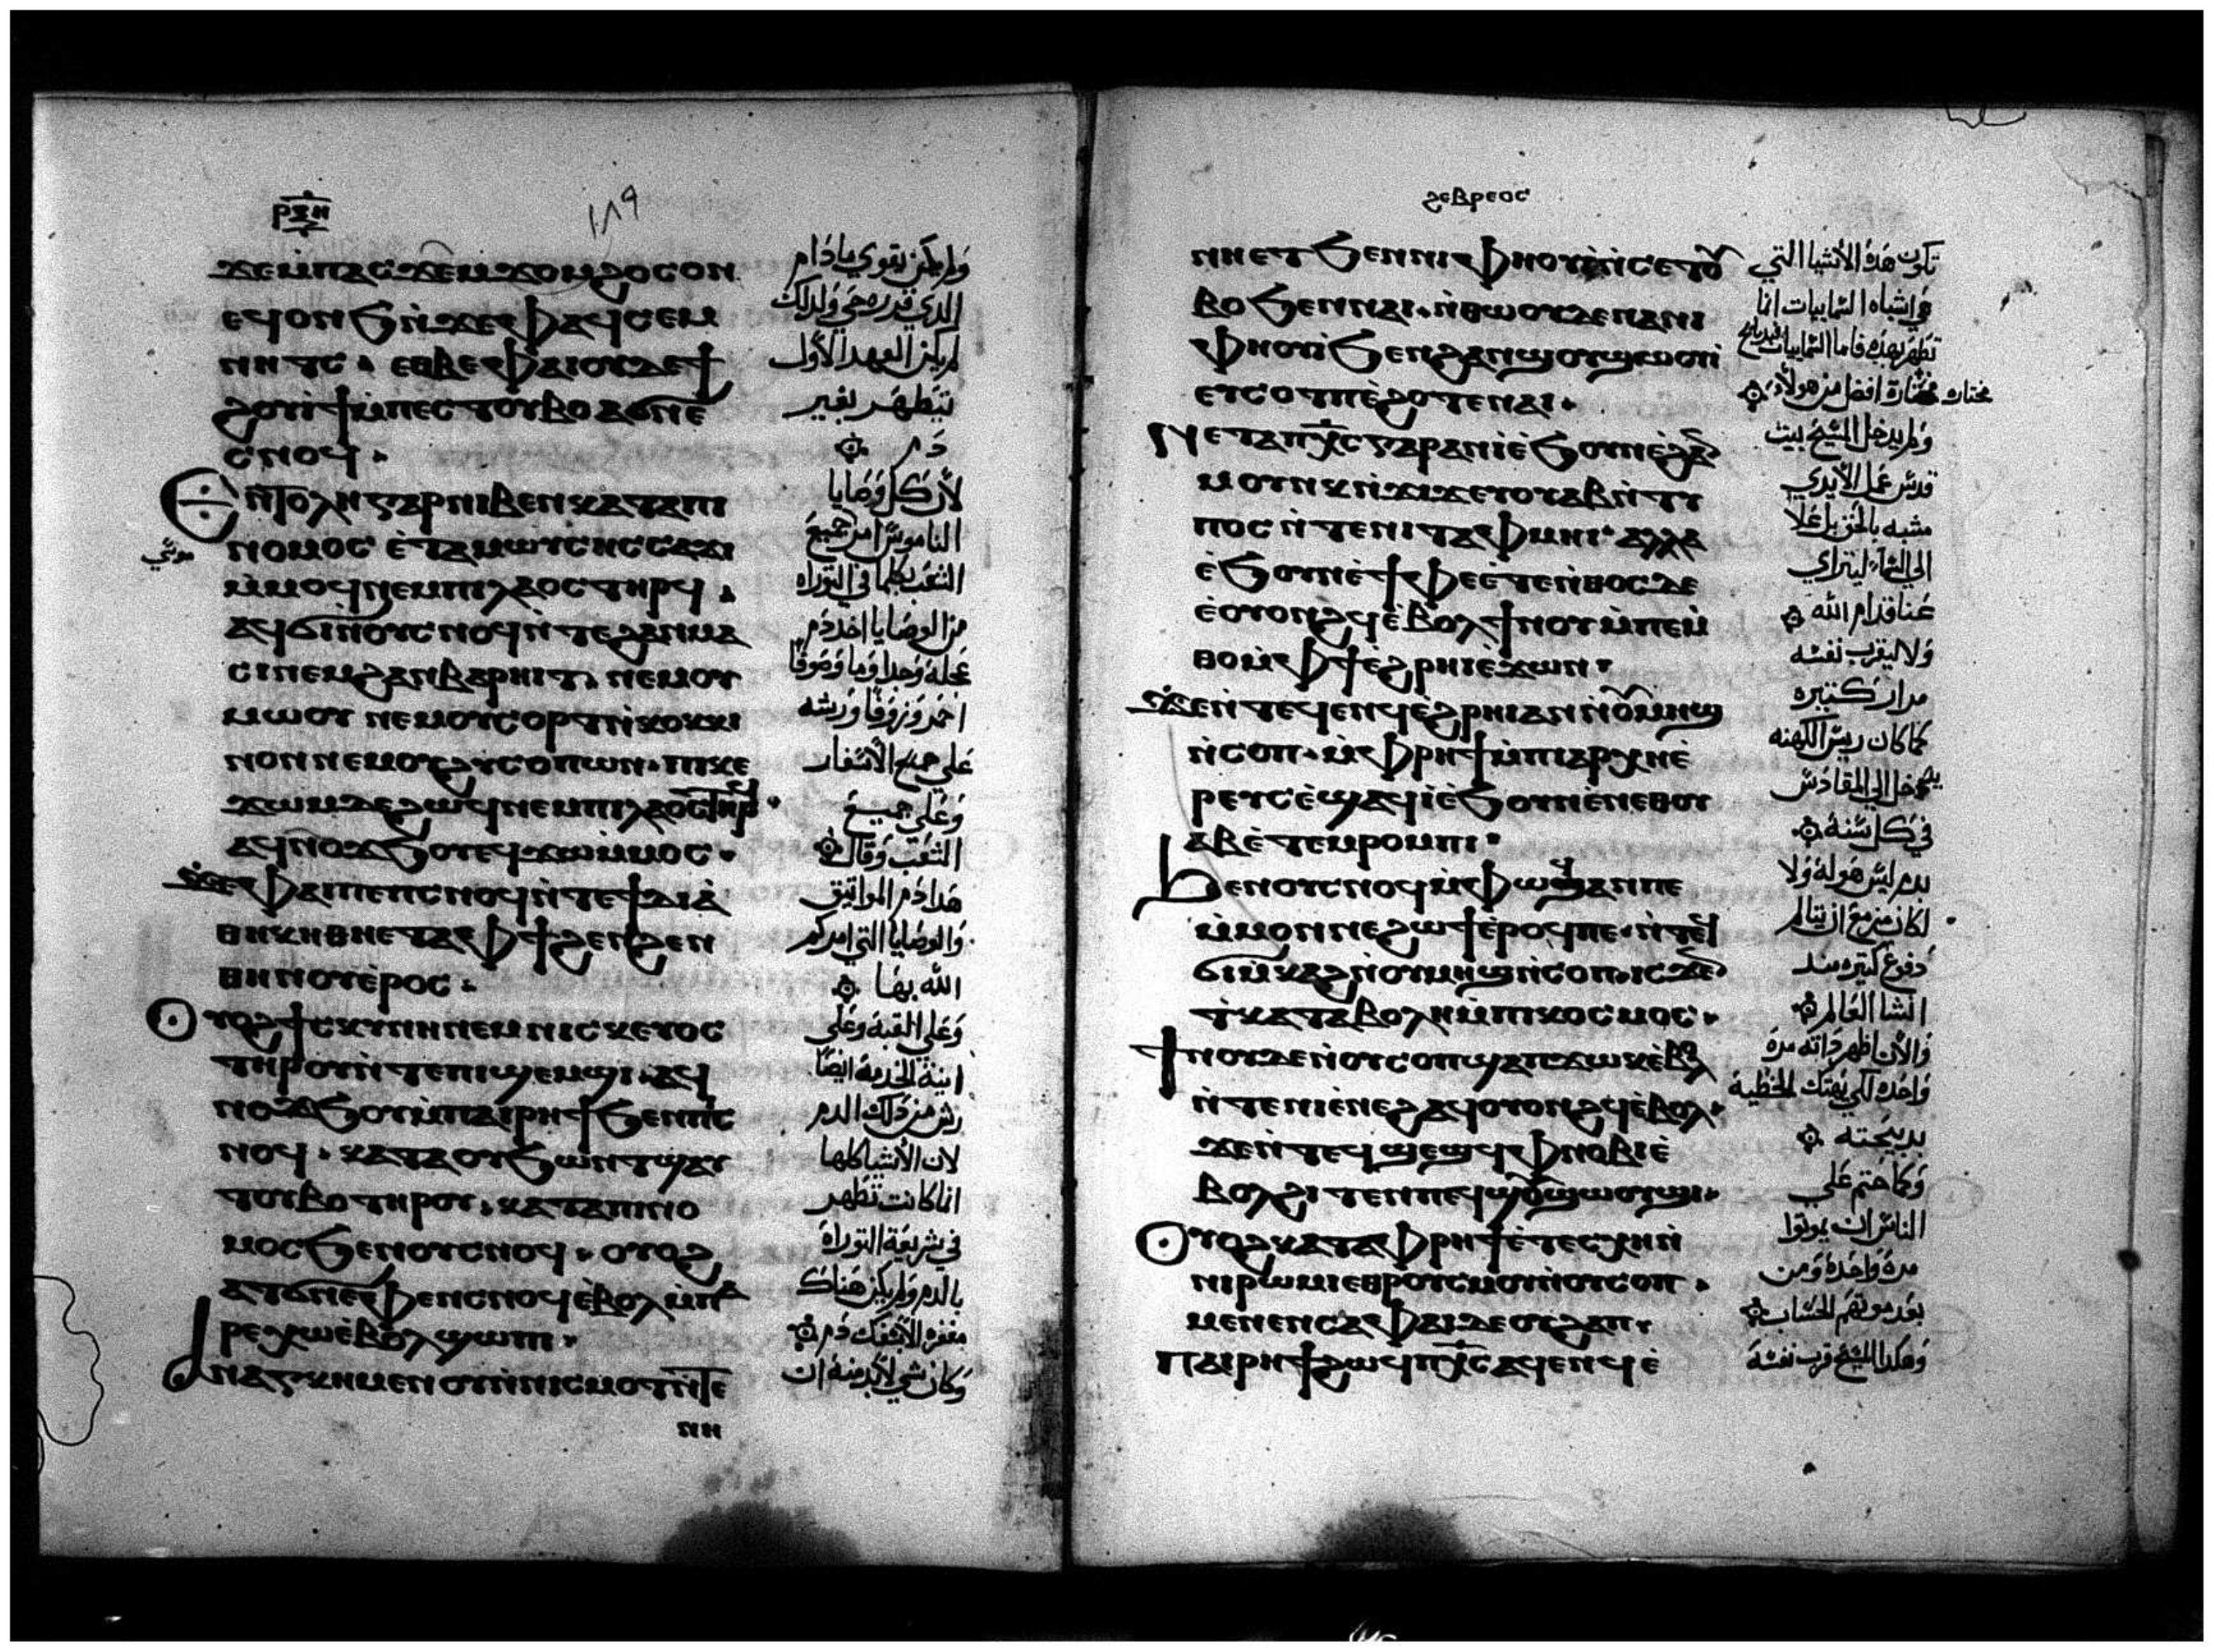 ⲣⲝⲏ
١٨٩
ϫⲉⲙⲡⲁⲥϫⲉⲙϫⲟⲙϩⲟⲥⲟⲛ
ⲉϥⲟⲛϧⲛ̇ϫⲉⲫⲁϥⲥⲉⲙ
ⲛⲏⲧⲥ · ⲉⲑⲃⲉⲫⲁⲓⲟⲩⲇⲉϯ
ϩⲟⲩⲓϯⲙ̇ⲡⲉⲥⲧⲟⲩⲃⲟⲁϭⲛⲉ
ⲥⲛⲟϥ ·
ⲉⲛⲧⲟⲗⲏⲅⲁⲣⲛⲓⲃⲉⲛⲕⲁⲧⲁⲡⲓ
ⲛⲟⲙⲟⲥ ⲉ̇ⲧⲁⲙⲱⲩⲥⲏⲥⲥⲁϫⲓ
ⲙ̇ⲙⲟϥⲛⲉⲙⲡⲓⲗⲁⲟⲥⲧⲏⲣϥ ·
ⲁϥϭⲓⲛ̇ⲟⲩⲥⲛⲟϥⲛ̇ⲧⲉϩⲁⲛⲙⲁ
ⲥⲓⲛⲉⲙϩⲁⲛⲃⲁⲣⲏⲓⲧ · ⲛⲉⲙⲟⲩ
ⲙⲱⲟⲩ ⲛⲉⲙⲟⲩⲥⲟⲣⲧⲛ̇ⲕⲟⲕⲕⲓ
ⲛⲟⲛⲛⲉⲙⲟⲩϩⲩⲥⲟⲡⲱⲛ · ⲡⲓⲕⲉ
ϫⲱⲙⲇⲉϩⲱϥⲛⲉⲙⲡⲓⲗⲁⲟⲥⲧⲏⲣϥ ·
ⲁϥⲛⲟϫϧⲟⲩⲉϥϫⲱⲙ̇ⲙⲟⲥ ·
ϫⲉⲫⲁⲓⲡⲉⲡⲥⲛⲟϥⲛ̇ⲧⲉϯⲇⲓⲁ̇
ⲑⲏⲕⲏⲑⲏⲉⲧⲁⲫϯϩⲉⲛϩⲉⲛ
ⲑⲏⲛⲟⲩⲉ̇ⲣⲟⲥ ·
ⲟⲩⲟϩϯⲥⲕⲩⲛⲏⲛⲉⲙⲛⲓⲥⲕⲉⲩⲟⲥ
ⲧⲏⲣⲟⲩⲛ̇ⲧⲉⲡⲓϣⲉⲙϣⲓ · ⲁϥ
ⲛⲟϫϧⲟⲩⲙ̇ⲡⲁⲓⲣⲏϯϧⲉⲛⲡⲓⲥ
ⲛⲟϥ · ⲕⲁⲧⲁⲟⲩϧⲱⲛⲧϣⲁⲩ
ⲧⲟⲩⲃⲟⲧⲏⲣⲟⲩ · ⲕⲁⲧⲁⲡⲓⲛⲟ
ⲙⲟⲥϧⲉⲛⲟⲩⲥⲛⲟϥ · ⲟⲩⲟϩ
ⲁⲧϭⲛⲉⲫⲉⲛⲥⲛⲟϥⲉ̇ⲃⲟⲗⲙ̇ⲡⲁ
ⲣⲉⲭⲱⲉ̇ⲃⲟⲗϣⲱⲡⲓ ·
ⲁⲛⲁⲅⲕⲏⲙⲉⲛⲟⲩⲛⲛⲓⲥⲙⲟⲧⲛ̇ⲧⲉ
ⲛⲏ
ولم يكن يقوي ما دام
الذي قدره حي ولذلك
لم يكن العهد الأول
يتطهر بغير
دم
لأن كل وصايا
الناموس امر جميع
موسي
الشعب بكلما في التوراه
من الوصايا اخد دم
عجله وجدا وما وصوفا
احمر وزوفا ورشه
علي جميع الأسفار
وعلي جميع
الشعب وقال
هدا دم المواتيق
والوصايا التي امركم
الله بها
وعلي القبه وعلي
انية الخدمة ايضا
رش من ذلك الدم
لان الأشيا كلها
انما كانت تطهر
في شريعة التوراه
بالدم ولم يكن هناك
مغفره الا بسفك دم
وكان شي لابد منه ان
ϩⲉⲃⲣⲉⲟⲥ
ⲛⲏⲉⲧϧⲉⲛⲛⲓⲫⲏⲟⲩⲓ̇ⲛ̇ⲥⲉⲧⲟⲩ
ⲃⲟϧⲉⲛⲛⲁⲓ · ⲛ̇ⲑⲱⲟⲩⲇⲉⲛⲁⲛⲓ
ⲫⲏⲟⲩⲓ̇ϧⲉⲛϩⲁⲛϣⲟⲩϣⲱⲟⲩϣⲓ
ⲉⲩⲥⲟⲧⲡⲉ̇ϩⲟⲧⲉⲛⲁⲓ ·
ⲛⲉⲧⲁⲡⲭ̅ⲥⲅⲁⲣⲁⲛⲓ̇ⲉ̇ϧⲟⲩⲛⲉ̇ϩⲁⲛ
ⲙⲟⲩⲛⲕⲛ̇ϫⲓϫⲉⲩⲟⲩⲁⲃⲛ̇ⲧⲩ
ⲡⲟⲥⲛ̇ⲧⲉⲛⲓⲧⲁⲫⲙⲏⲓ · ⲁⲗⲗⲁ
ⲉ̇ϧⲟⲩⲛⲉ̇ⲧⲫⲉⲉ̇ⲧⲉⲛ̇ⲑⲟⲥⲇⲉ
ⲉ̇ⲟⲩⲟⲛϩϥⲉ̇ⲃⲟⲗϯⲛⲟⲩⲙ̇ⲡⲉⲙ̇
ⲑⲟⲙ̇ⲫϯⲉ̇ϩⲣⲏⲓⲉ̇ϫⲱⲛ ·
ϫⲉⲛ̇ⲧⲉϥⲉⲛϥⲉ̇ϩⲣⲏⲓⲁⲛⲛ̇ⲟⲩⲙⲏϣ
ⲛ̇ⲥⲟⲡ · ⲙ̇ⲫⲣⲏϯⲙ̇ⲡⲓⲁⲣⲭⲏⲉ̇
ⲣⲉⲩⲥⲉ̇ϣⲁϥⲓ̇ⲉ̇ϧⲟⲩⲛⲉ̇ⲛⲉⲑⲟⲩ
ⲁⲃⲉ̇ⲧⲉⲙⲣⲟⲙⲡⲓ ·
ϧⲉⲛⲟⲩⲥⲛⲟϥⲙ̇ⲫⲱϥⲁⲛⲡⲉ
ⲙ̇ⲙⲟⲛⲛⲉϩⲱϯⲉ̇ⲣⲟϥⲡⲉ · ⲛ̇ⲧⲉϥ
ϭⲓⲙ̇ⲕⲁϩⲛ̇ⲟⲩⲙⲏϣⲛ̇ⲥⲟⲡ · ⲓⲥϫⲉⲛ
ⲧ̇ⲕⲁⲧⲁⲃⲟⲗⲏⲙ̇ⲡⲓⲕⲟⲥⲙⲟⲥ ·
ϯⲛⲟⲩⲇⲉⲛ̇ⲟⲩⲥⲟⲡϣⲁⲡϫⲱⲕⲉ̇ⲃⲟⲗ
ⲛ̇ⲧⲉⲛⲓⲉ̇ⲛⲉϩⲁϥⲟⲩⲟⲛϩϥⲉ̇ⲃⲟⲗ ·
ϫⲉⲛ̇ⲧⲉϥϣⲉϣϥⲫⲛⲟⲃⲓⲉ̇
ⲃⲟⲗϩⲓⲧⲉⲛⲡⲉϥϣⲟⲩϣⲱⲟⲩϣⲓ ·
ⲟⲩⲟϩⲕⲁⲧⲁⲫⲣⲏϯⲉ̇ⲧⲉⲥⲭⲏⲛ̇
ⲛⲓⲣⲱⲙⲓⲉⲑⲣⲟⲩⲥⲙⲟⲩⲛ̇ⲟⲩⲥⲟⲡ ·
ⲙⲉⲛⲉⲛⲥⲁⲫⲁⲓⲇⲉⲟⲩϩⲁⲡ ·
ⲡⲁⲓⲣⲏϯϩⲱϥⲡⲭ̅ⲥⲁϥⲉⲛϥⲉ̇
تكون هذه الأشيا التي
هي اشباه السماييات انما
تطهر بهذه فاما السماييات فبدبايح
مختاره افضل من هولاد
مختاره
ولم يدخل المسيح بيت
قدس عمل الأيدي
مشبه بالحق بل علا
الي السما ليتراي
عنا قدام الله
ولا ليقرب نفسه
مرار كتيره
كما كان ريس الكهنه
يدخل الي المقادس
في كل سنة
بدم ليس هو له ولا
لكان مزمع ان يتالم
دفوع كتيره مند
انشا العالم
والأن اظهر داته مرة
واحده لكي يهتك الخطية
بدبيحته
وكما ختم علي
الناس ان يموتوا
مرة واحدة ومن
بعد موتهم الحساب
وهكدا المسيح قرب نفسه